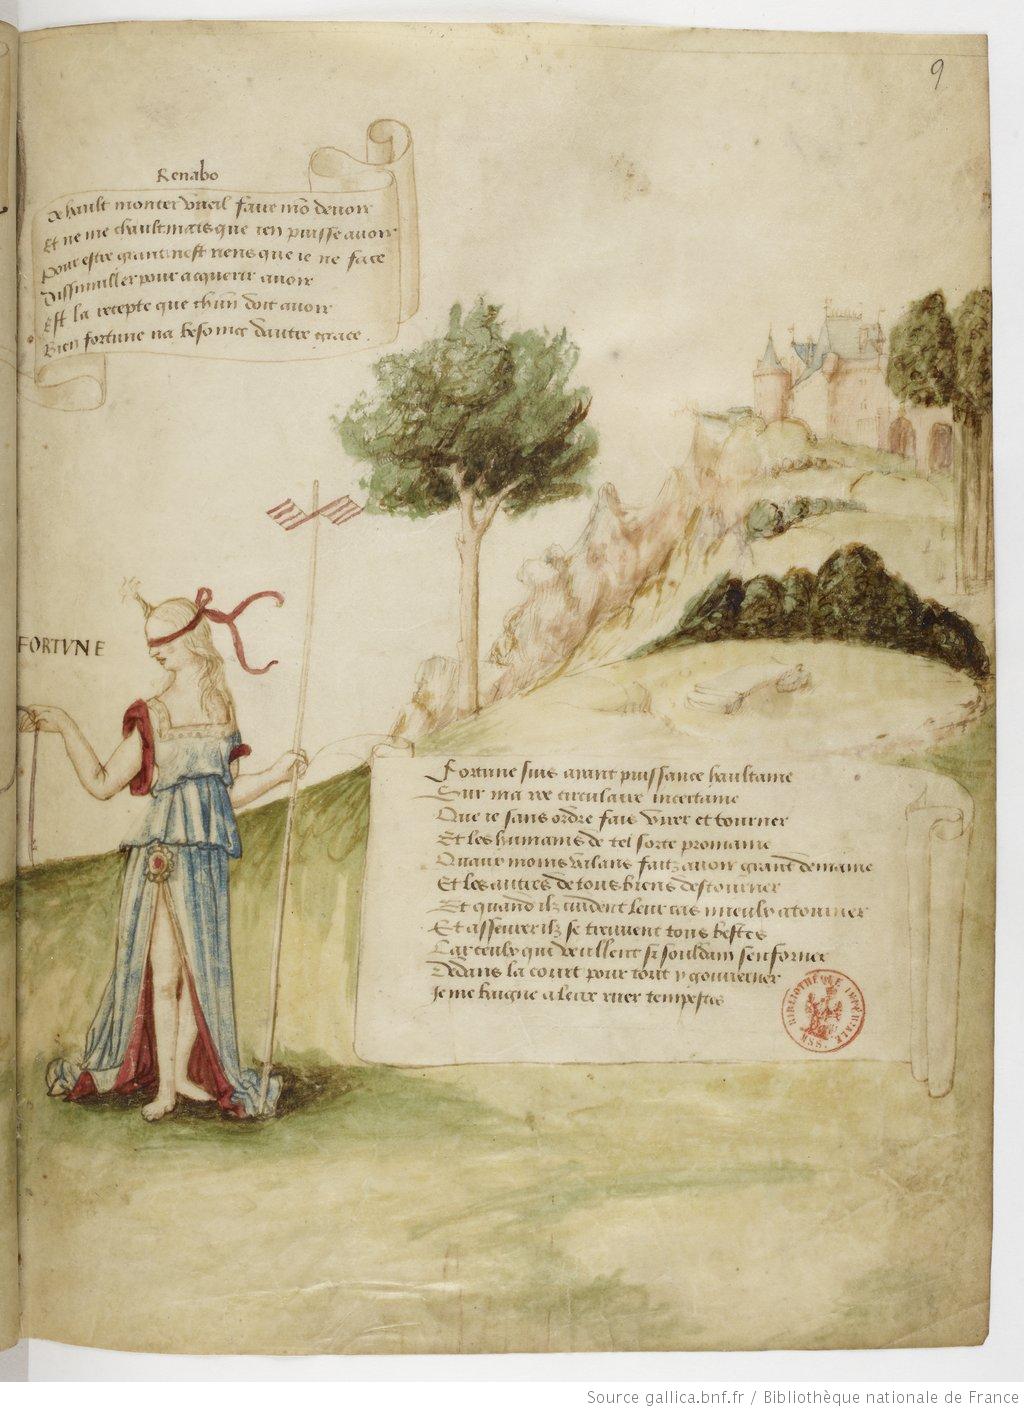 9
Renabo
De hault monter vueil faire mõ devoir
Et ne me chault mais que ien puisse avoir
Pour estre grant nest riens que ie ne face
Dissimuller pour acquerir avoir
Est la recepte que chũn doit avoir
Bien fortune na besoing dautre grace.
FORTVNE
Fortune suis ayant puissance haultaine
Sur ma roe circulaire incertaine
Que ie sans ordre fais virer et tourner
Et les humains de tel sorte promaine
Quaux moins vallans faitz avoir grant demaine
Et les autres de tous biens destourner
Et quand ilz cuident leur cas mieulx atourner
Et asseurer ilz se treuvent tous bestes
Car ceulx qui veullent si souldain
Dedans la court pour tout y gouverner
Je me baigne a leur ruer tempestes
BIBLIOTHÈQUE IMPÉRIALE MSS.
Source gallica.bnf.fr / Bibliothèque nationale de France